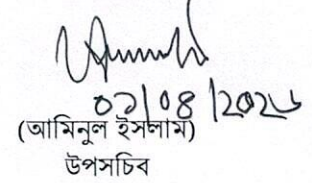 ০১/০৪/২০২৬
(আমিনুল ইসলাম)
উপসচিব